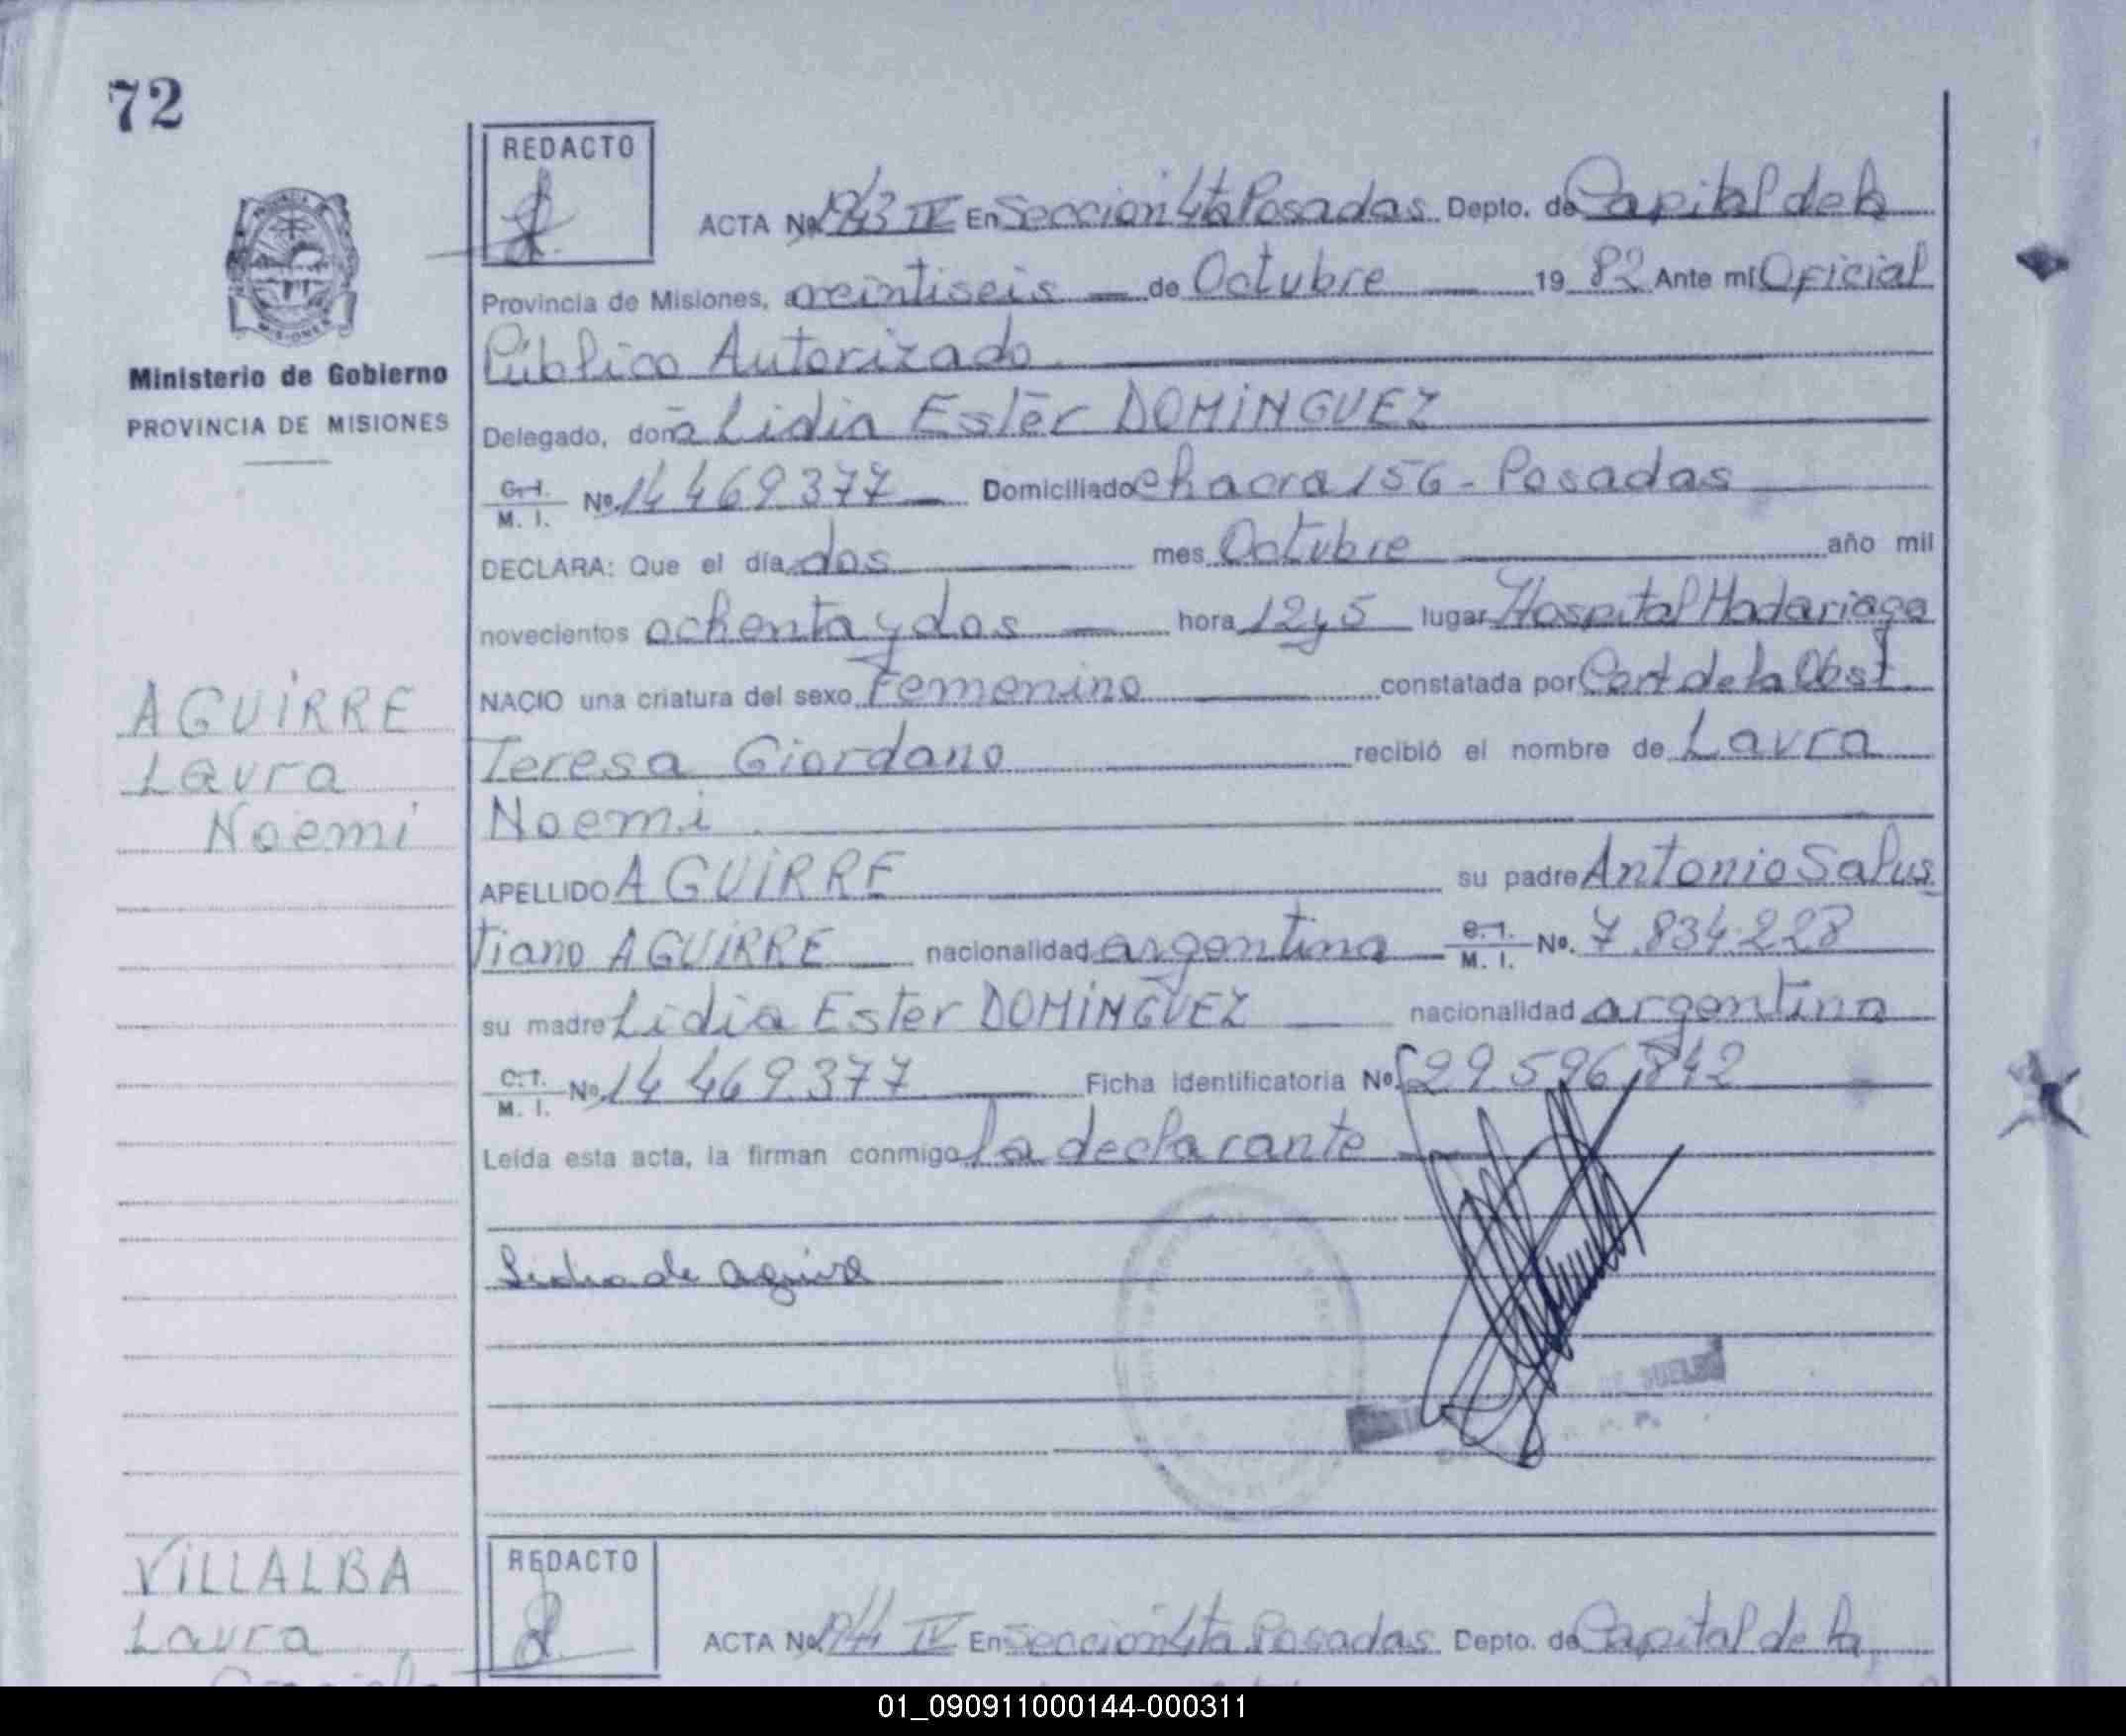 72
REDACTO
ACTA Nº 1943 IV En Seccion 4ta Posadas Depto. de Capital de la
Provincia de Misiones, a veintiseis — de Octubre — 19 82 Ante mí Oficial
Público Autorizado
Ministerio de Gobierno
PROVINCIA DE MISIONES
Delegado, doña Lidia Ester DOMINGUEZ
C.I. M. I. Nº 14 469.377 — Domiciliado chacra 156 - Posadas
DECLARA: Que el día dos — mes Octubre — año mil
novecientos ochenta y dos — hora 12 y 5 lugar Hospital Madariaga
NACIO una criatura del sexo Femenino — constatada por Cert de la Obst.
AGUIRRE
Laura
Noemi
Teresa Giordano recibió el nombre de Laura
Noemi
APELLIDO AGUIRRE su padre Antonio Salus
tiano AGUIRRE — nacionalidad argentina — C.I. M. I. Nº. 7.834.228
su madre Lidia Ester DOMINGUEZ — nacionalidad argentina
C.I. M. I. Nº 14 469.377 — Ficha identificatoria Nº 29.596.842
Leída esta acta, la firman conmigo la declarante —
Lidia de Aguirre
VILLALBA
Laura
REDACTO
ACTA Nº 1944 IV En Seccion 4ta Posadas Depto. de Capital de la
01_090911000144-000311